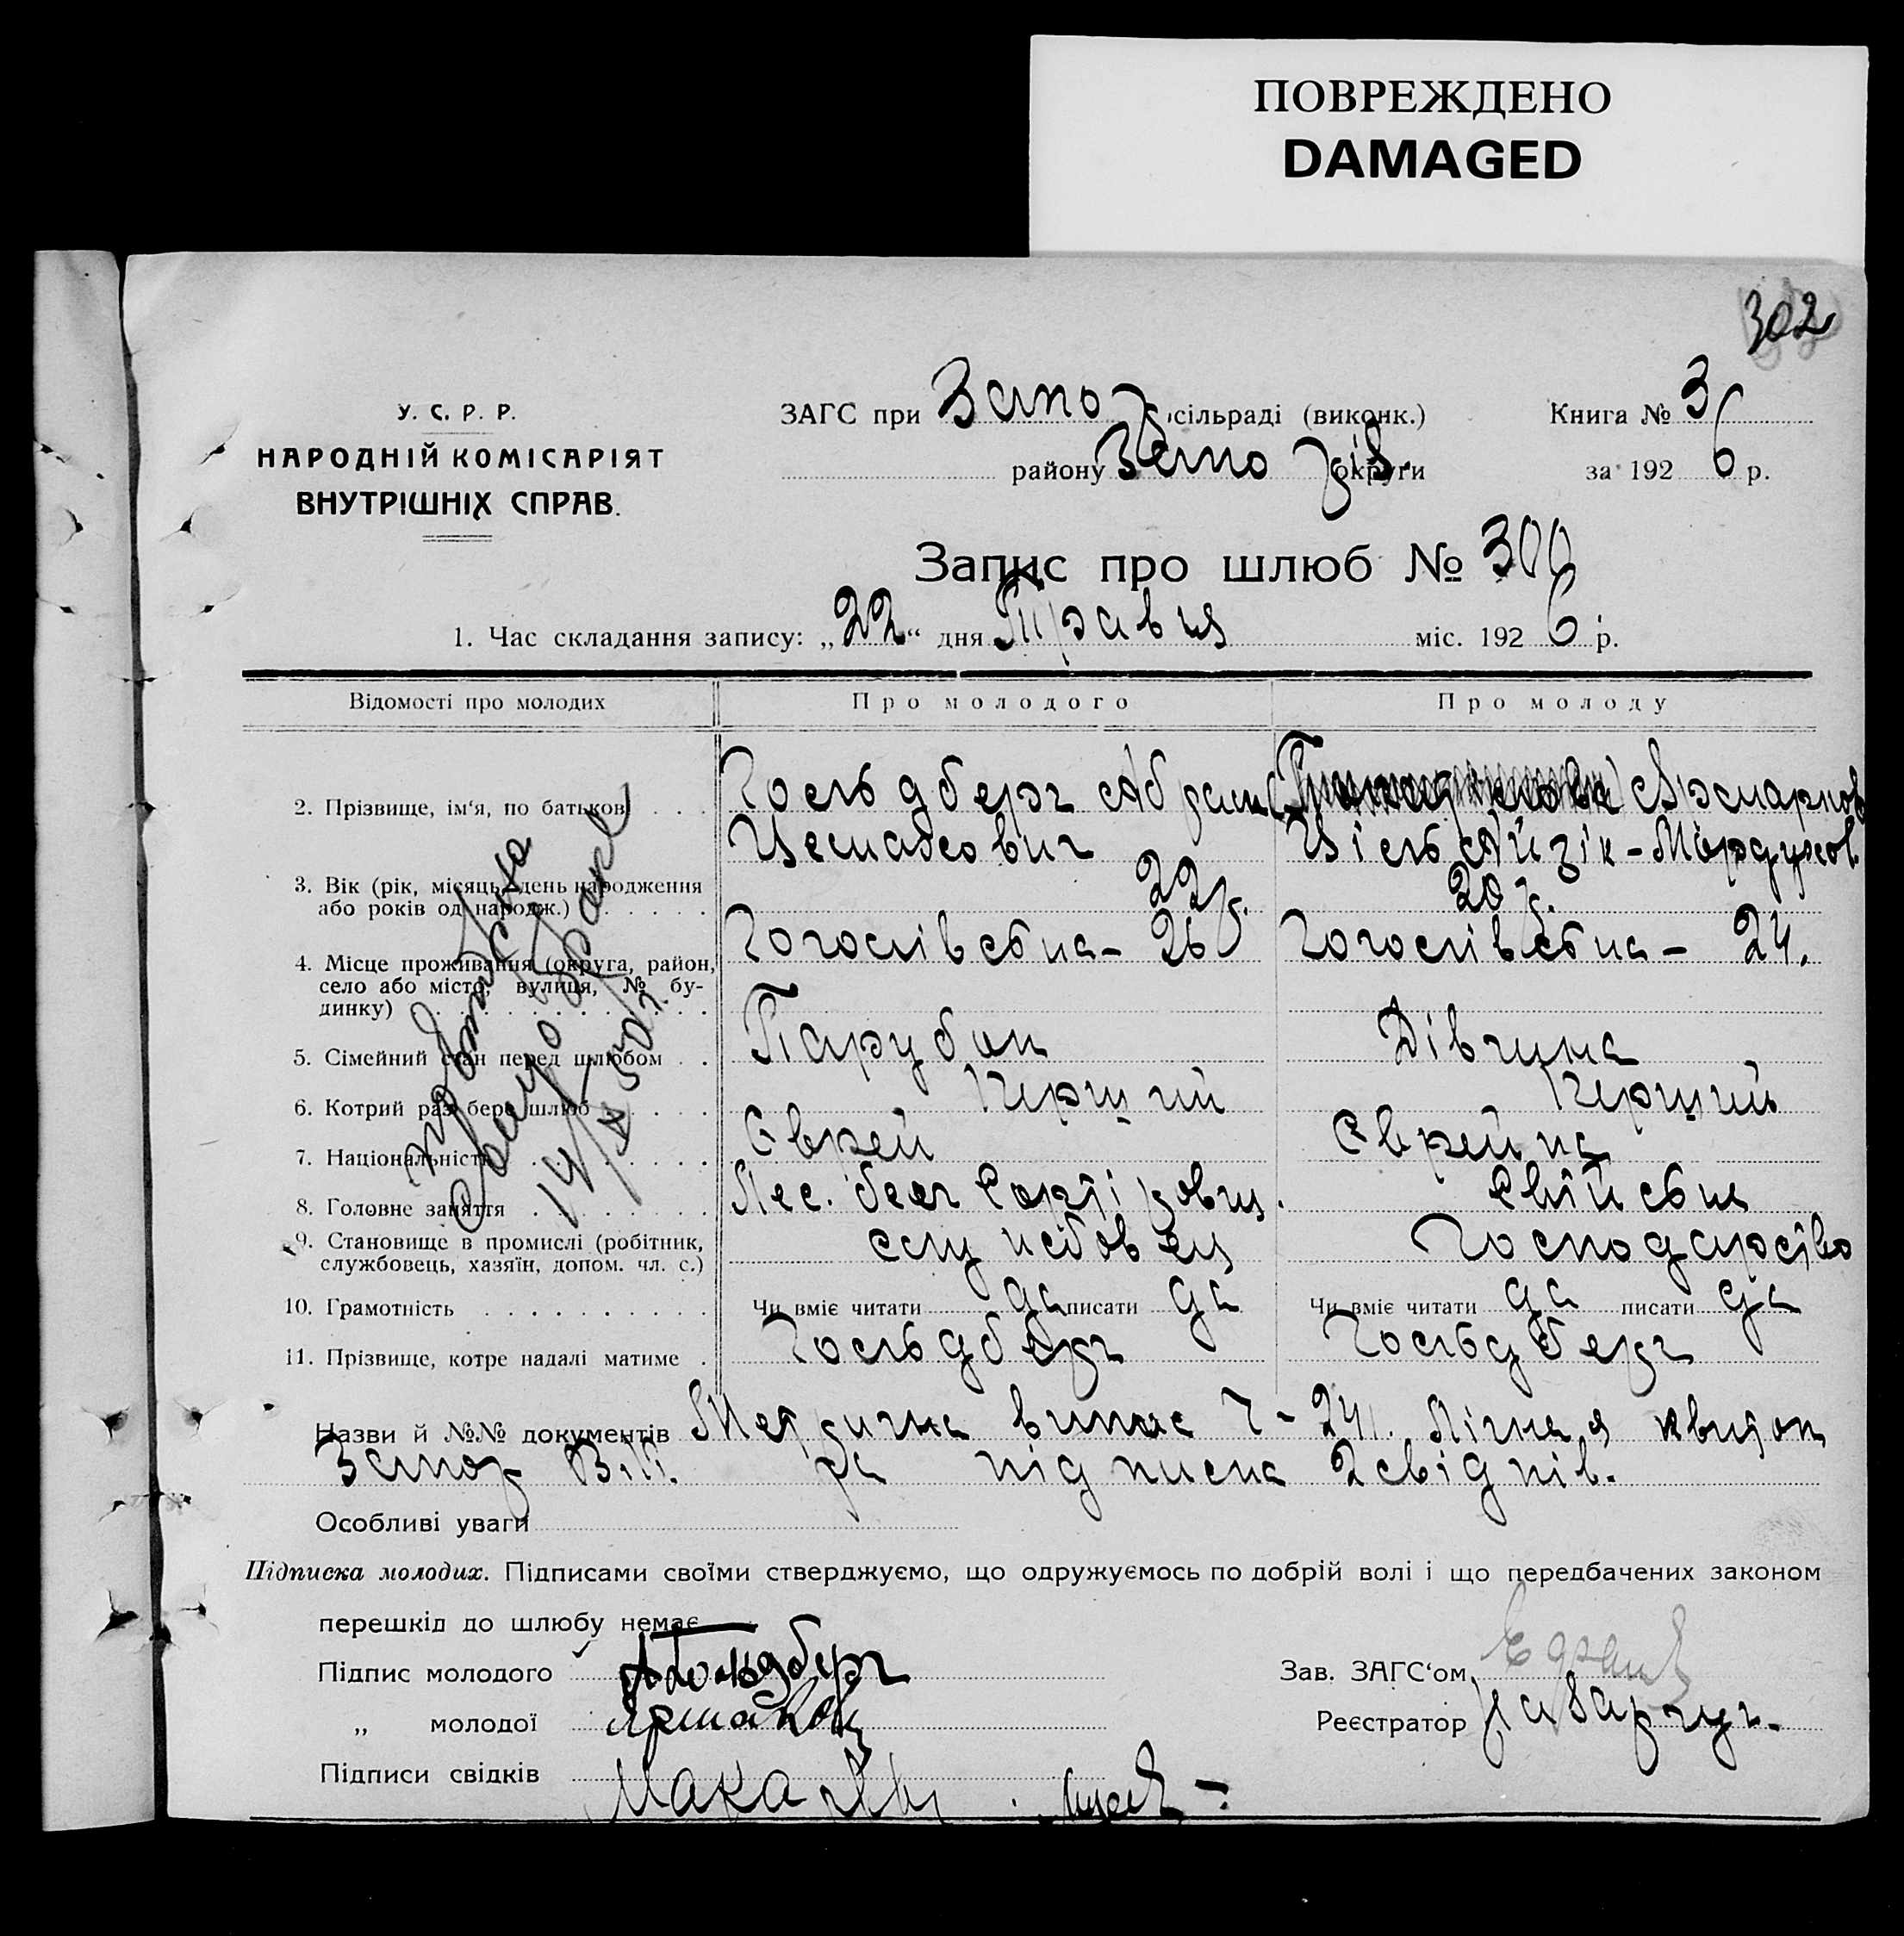 ПОВРЕЖДЕНО
DAMAGED
302
У. С. Р. Р.
НАРОДНІЙ КОМІСАРІЯТ
ВНУТРІШНІХ СПРАВ.
ЗАГС при Запор сільраді (виконк.)
Книга № 3
району Запорів. округи
за 1926 р.
Запис про шлюб № 300
1. Час складання запису: „22“ дня Травня міс. 1926 р.
Відомості про молодих
Про молодого
Про молоду
2. Прізвище, ім‘я, по батькові . . .
Гольдберг Абрам
3. Вік (рік, місяць, день народження
або років од народж.) . . . . .
22 р.
20 р.
4. Місце проживання (округа, район,
село або місто, вулиця, № бу-
динку) . . . . . . . . . . .
26
24.
5. Сімейний стан перед шлюбом . .
Парубок
Дівчина
6. Котрий раз бере шлюб . . . . .
Перший
Перший
7. Національність . . . . . . . .
Єврей
Єврейка
8. Головне заняття . . . . . . . .
9. Становище в промислі (робітник,
службовець, хазяїн, допом. чл. с.)
службовец
господарство
10. Грамотність . . . . . . . . . .
Чи вміє читати да писати да
Чи вміє читати да писати да
11. Прізвище, котре надалі матиме .
Гольдберг
Гольдберг
Назви й №№ документів Метрична випис Ч-241. квиток
Запор В.М. та підписка 2 свідків.
Особливі уваги
Підписка молодих. Підписами своїми стверджуємо, що одружуємось по добрій волі і що передбачених законом
перешкід до шлюбу немає
Підпис молодого АГольдберг
Зав. ЗАГС‘ом
„ молодої
Реєстратор
Підписи свідків